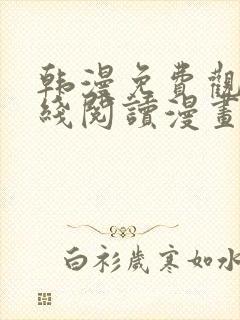 韩漫免費觀
綫閱讀漫畫
白衫歲寒如水